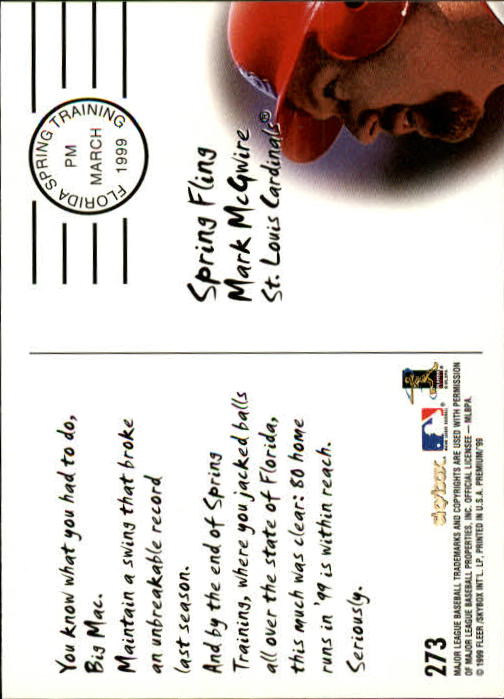 You know what you had to do,
Big Mac.
Maintain a swing that broke
an unbreakable record
last season.
And by the end of Spring
Training, where you jacked balls
all over the state of Florida,
this much was clear: 80 home
runs in '99 is within reach.
Seriously.
FLORIDA SPRING TRAINING
PM
MARCH
1999
Spring Fling
Mark McGwire
St. Louis Cardinals®
273
skybox
MAJOR LEAGUE BASEBALL TRADEMARKS AND COPYRIGHTS ARE USED WITH PERMISSION
OF MAJOR LEAGUE BASEBALL PROPERTIES, INC. OFFICIAL LICENSEE — MLBPA.
© 1999 FLEER/SKYBOX INT'L. LP. PRINTED IN U.S.A. PREMIUM/'99